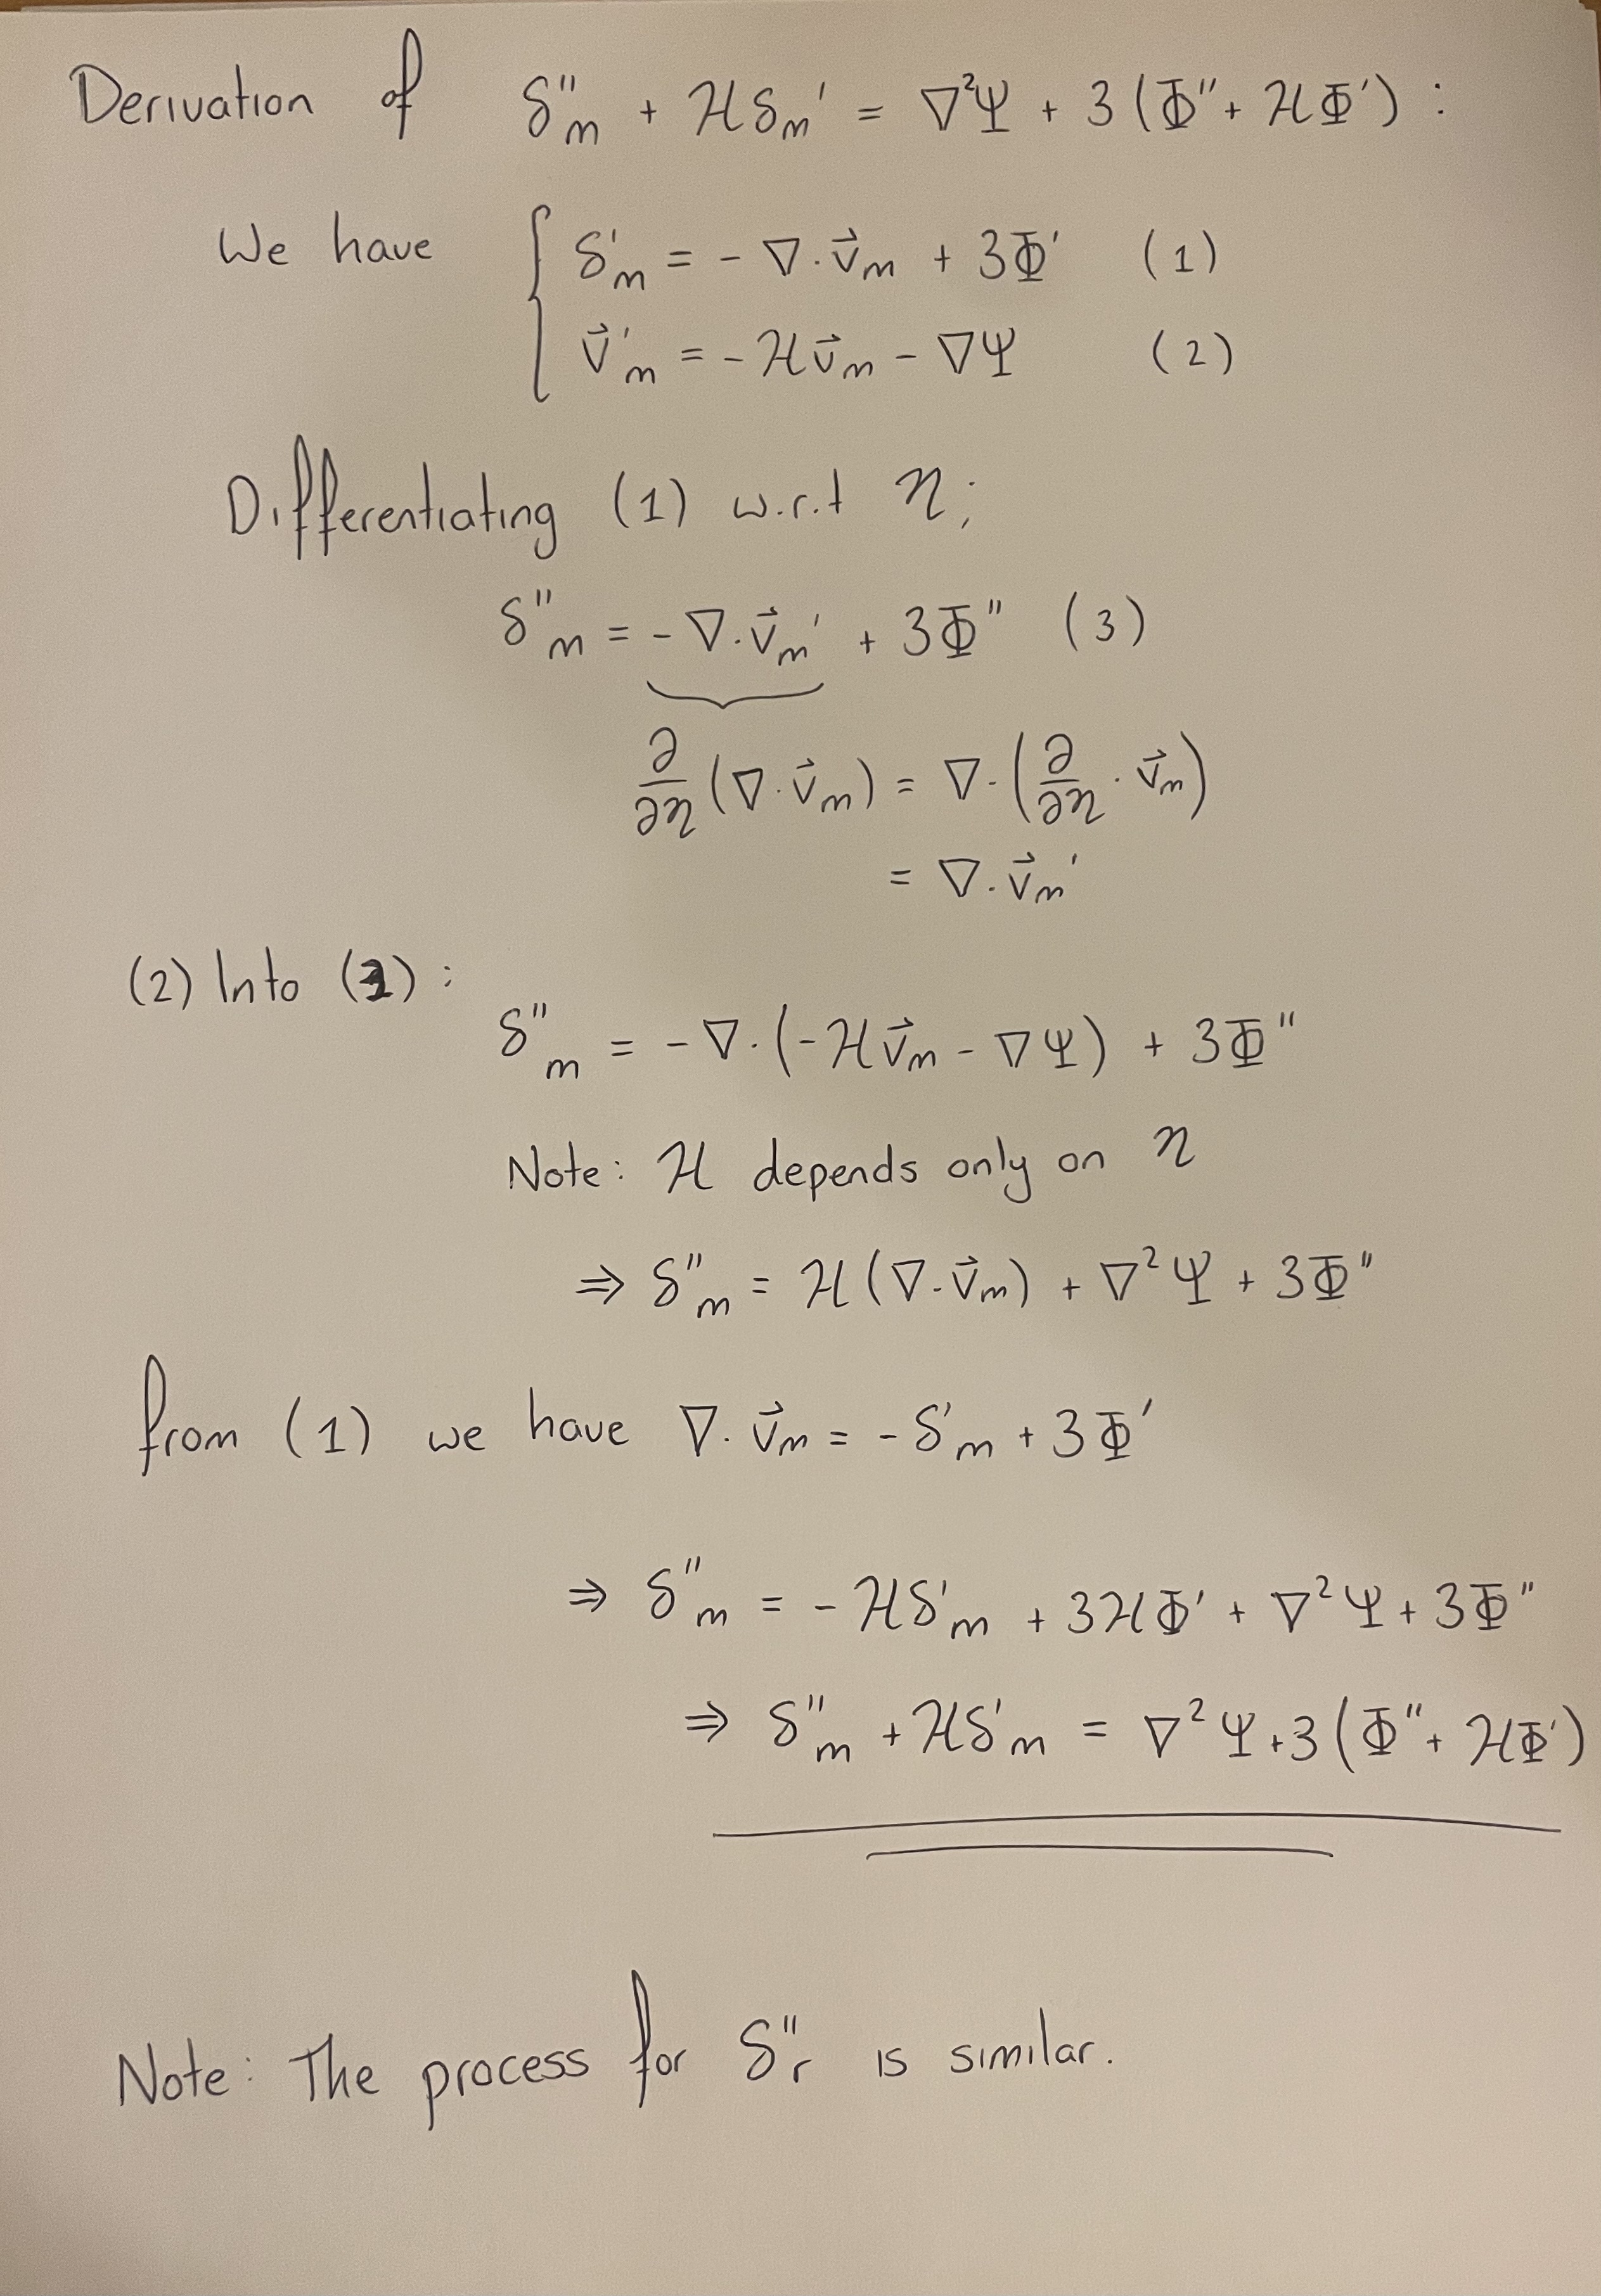 Derivation of δ''ₘ + ℋδₘ' = ∇²Ψ + 3(Φ'' + ℋΦ') :
We have { δ'ₘ = - ∇·v⃗ₘ + 3Φ' (1)
v⃗'ₘ = -ℋv⃗ₘ - ∇Ψ (2)
Differentiating (1) w.r.t η;
δ''ₘ = -∇·v⃗ₘ' + 3Φ'' (3)
∂/∂η (∇·v⃗ₘ) = ∇·(∂/∂η · v⃗ₘ)
= ∇·v⃗ₘ'
(2) Into (3) :
δ''ₘ = -∇·(-ℋv⃗ₘ - ∇Ψ) + 3Φ''
Note: ℋ depends only on η
⇒ δ''ₘ = ℋ(∇·v⃗ₘ) + ∇²Ψ + 3Φ''
from (1) we have ∇·v⃗ₘ = -δ'ₘ + 3Φ'
⇒ δ''ₘ = -ℋδ'ₘ + 3ℋΦ' + ∇²Ψ + 3Φ''
⇒ δ''ₘ + ℋδ'ₘ = ∇²Ψ + 3(Φ'' + ℋΦ')
Note: The process for δ''ᵣ is similar.